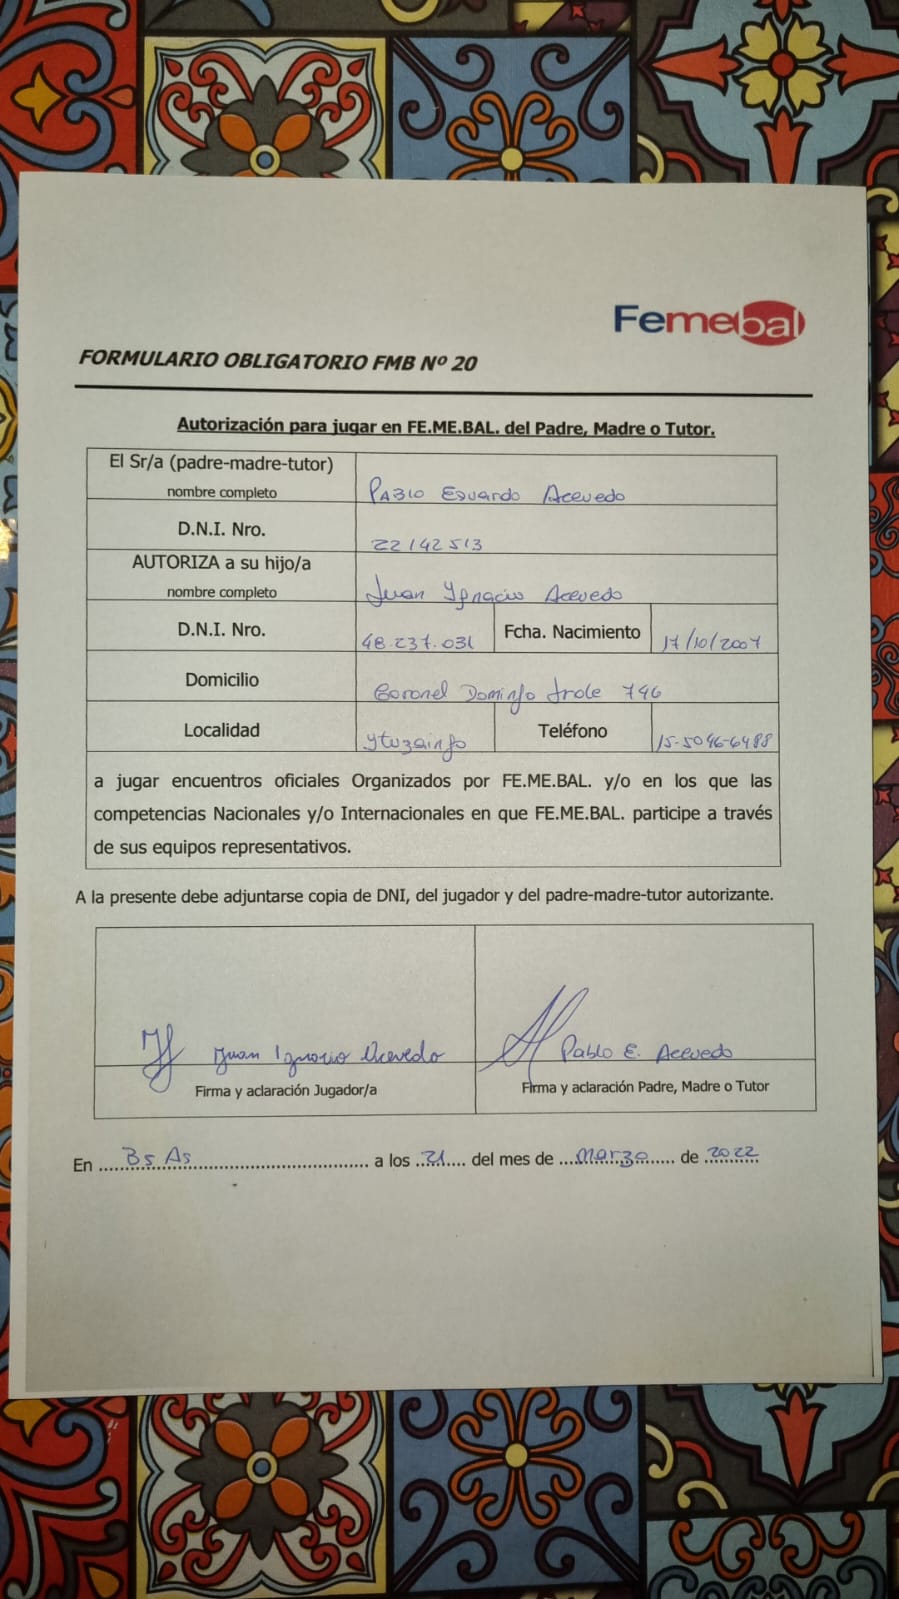 Femebal
FORMULARIO OBLIGATORIO FMB Nº 20
Autorización para jugar en FE.ME.BAL. del Padre, Madre o Tutor.
El Sr/a (padre-madre-tutor)
nombre completo
Pablo Eduardo Acevedo
D.N.I. Nro.
22142513
AUTORIZA a su hijo/a
nombre completo
Juan Ygnacio Acevedo
D.N.I. Nro.
48.237.031
Fcha. Nacimiento
17/10/2007
Domicilio
Coronel Domingo 746
Localidad
Ytuzaingo
Teléfono
15-5046-6488
a jugar encuentros oficiales Organizados por FE.ME.BAL. y/o en los que las
competencias Nacionales y/o Internacionales en que FE.ME.BAL. participe a través
de sus equipos representativos.
A la presente debe adjuntarse copia de DNI, del jugador y del padre-madre-tutor autorizante.
Juan Ignacio Acevedo
Pablo E. Acevedo
Firma y aclaración Jugador/a
Firma y aclaración Padre, Madre o Tutor
En Bs As a los 21 del mes de Marzo de 2022